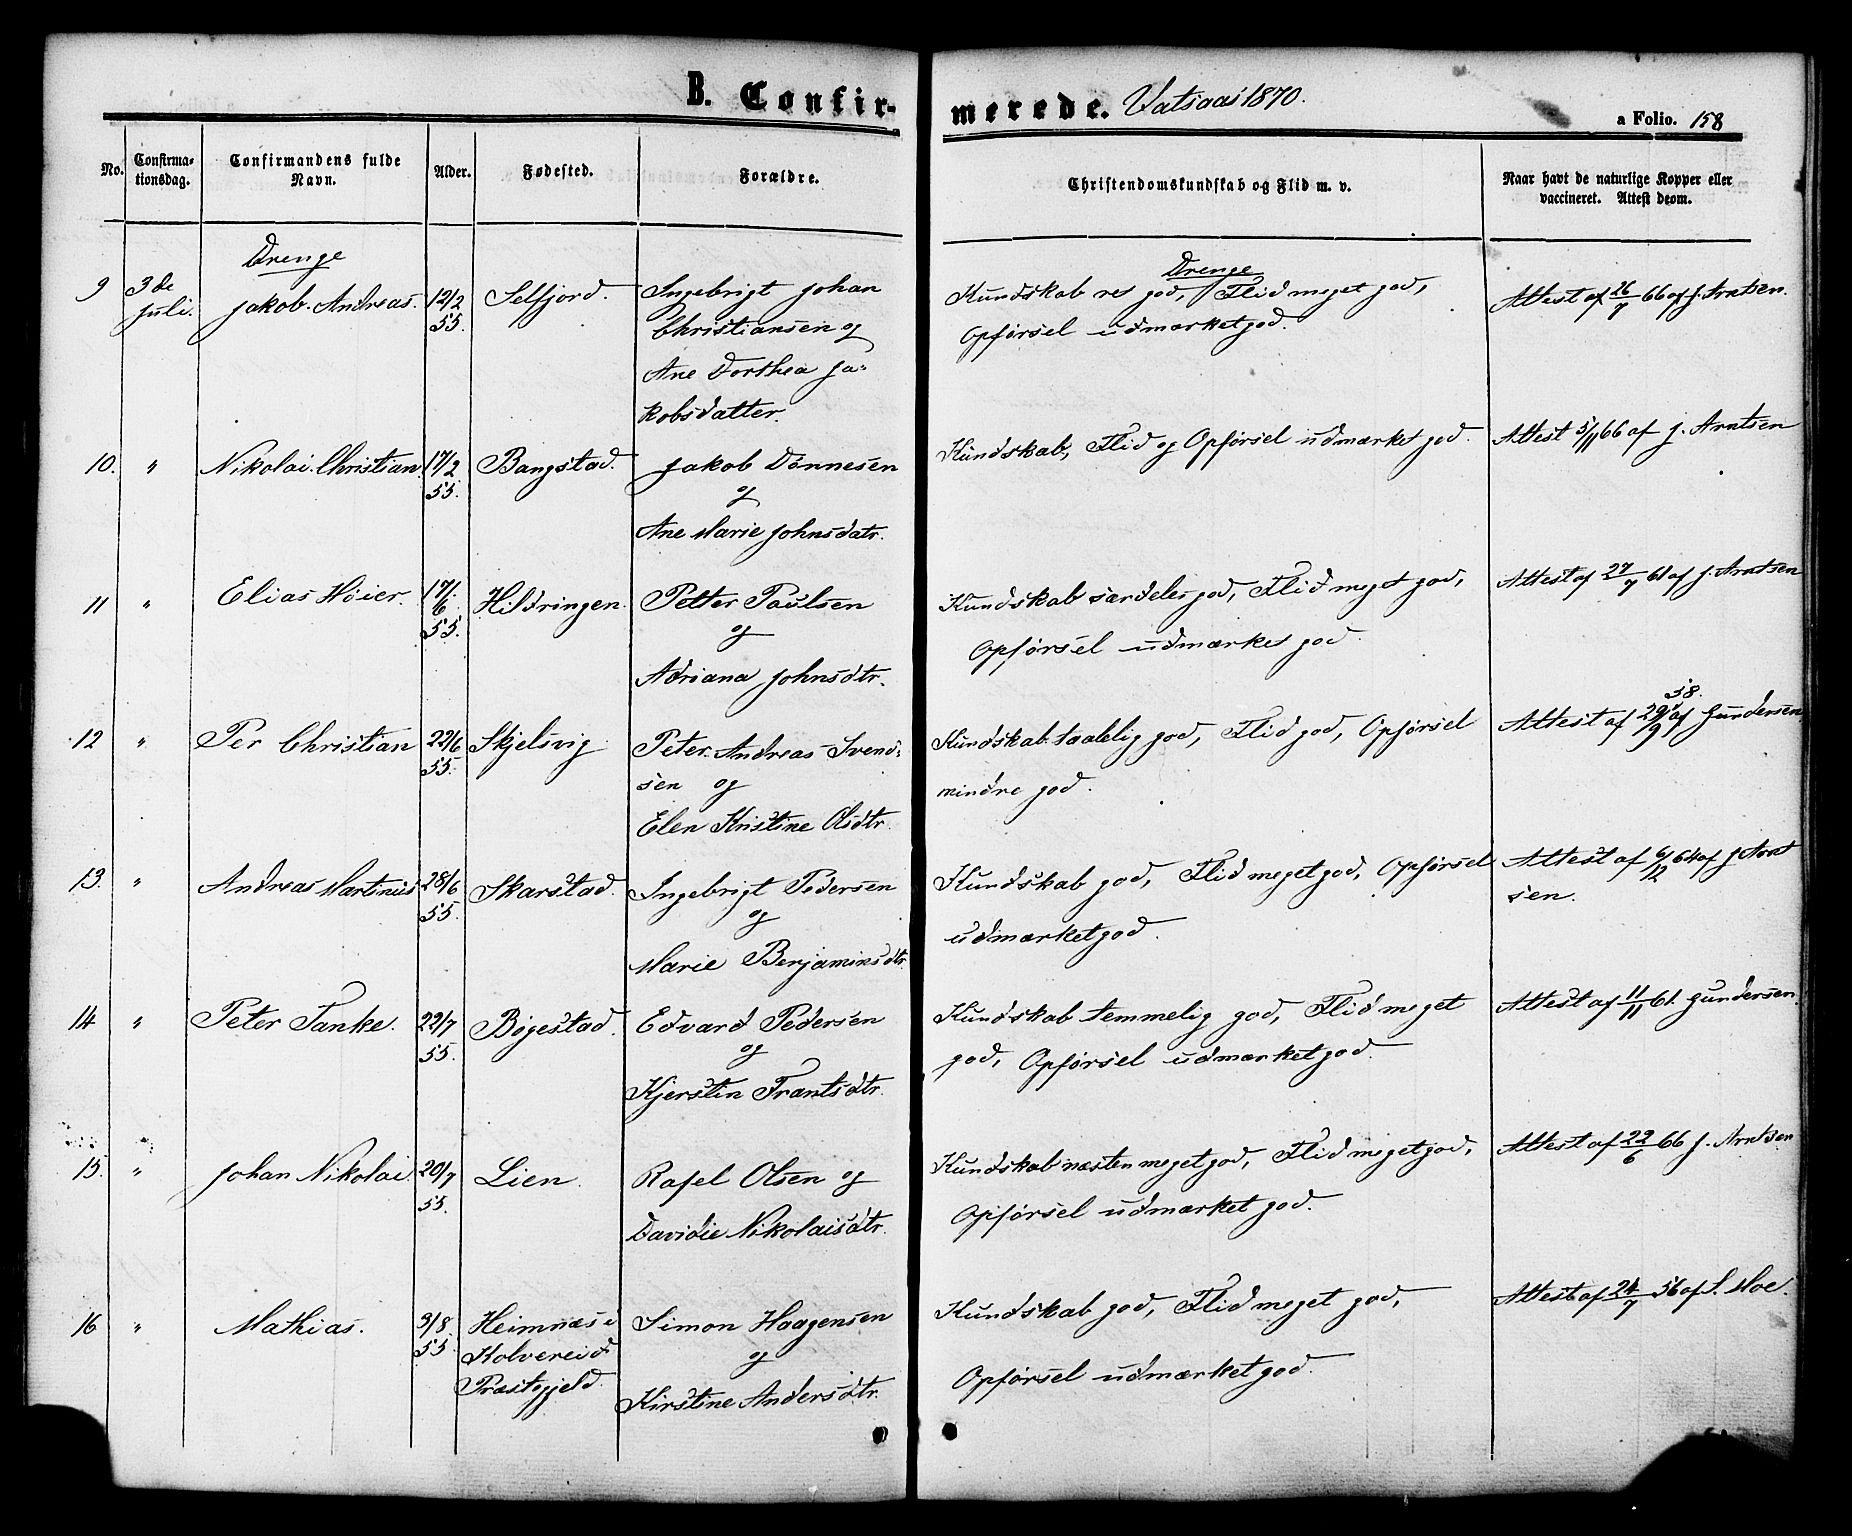 B. Confir-
merede. Vatsaas 1870.
a Folio. 158
No. Confirma-tionsdag. Confirmandens fulde Navn. Alder. Fødested. Forældre. Christendomskundskab og Flid m. v. Naar havt de naturlige Kopper eller vaccineret. Attest deom.
Drenge Drenge
9 3de Juli. Jakob Andreas. 12/2 55. Selfjord. Ingebrigt Johan Kundskab res god, Flid meget god, Attest af 26/7 66 af J. Arntsen.
Christiansen og Opførsel udmærket god.
Ane Dorthea Ja-
kobsdatter.
10. " Nikolai Christian 17/2 55. Bangstad. Jakob Dønnesen Kundskab, Flid og Opførsel udmærket god. Attest 5/11 66 af J. Arntsen
og
Ane Marie Johnsdatr.
11 " Elias Høier. 17/6 55. Hildringen Petter Paulsen Kundskab særdeles god, Flid meget god, Attest af 27/7 61 af J. Arntsen
og Opførsel udmærket god.
Adriana Johnsdtr.
12 " Per Christian 22/6 55. Skjelsvig Peter Andreas Svend- Kundskab taalelig god, Flid god, Opførsel Attest af 29/9 58. af Gundersen
sen og mindre god.
Elen Kristine Olsdtr.
13. " Andreas Martinus 28/6 55. Skarstad. Ingebrigt Pedersen Kundskab god, Flid meget god, Opførsel Attest af 6/12 64 af J Arnt
og udmærket god. sen.
Marie Benjaminsdtr.
14 " Peter Tanke. 22/7 55. Bøgestad. Edvard Pedersen Kundskab temmelig god, Flid meget Attest af 11/11 61. Gundersen.
og god, Opførsel udmærket god.
Kjerstin Frantsdtr.
15. " Johan Nikolai. 20/7 55. Lien. Rafel Olsen og Kundskab næsten meget god, Flid meget god, Attest af 22/6 66 J. Arntsen
Davidie Nikolaisdtr. Opførsel udmærket god.
16 " Mathias. 9/8 55. Heimnæs i Simon Haagensen Kundskab god, Flid meget god, Attest af 24/7 56 af S. Moe.
Kolvereid og Opførsel udmærket god.
Præstegjeld. Kirstine Andersdtr.